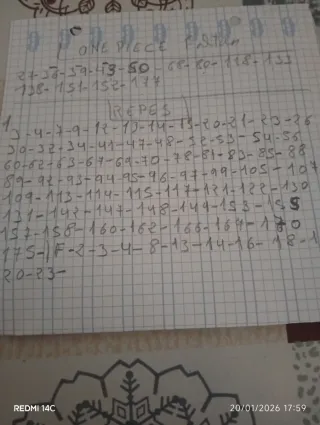 ONE PIECE
27-38-39-43-50-68-80-128-133
138-151-152-177
REPES
1
3-4-7-9-12-13-14-19-20-21-23-26
30-32-34-41-47-48-52-53-54-56
60-62-63-67-69-70-78-81-83-85-88
89-92-93-94-95-96-97-99-105-107
109-113-114-115-117-121-122-130
131-142-147-148-149-153-155
157-158-160-162-166-167-170
175-1F-2-3-4-8-13-14-16-18-1
20-23-
REDMI 14C
20/01/2026 17:59